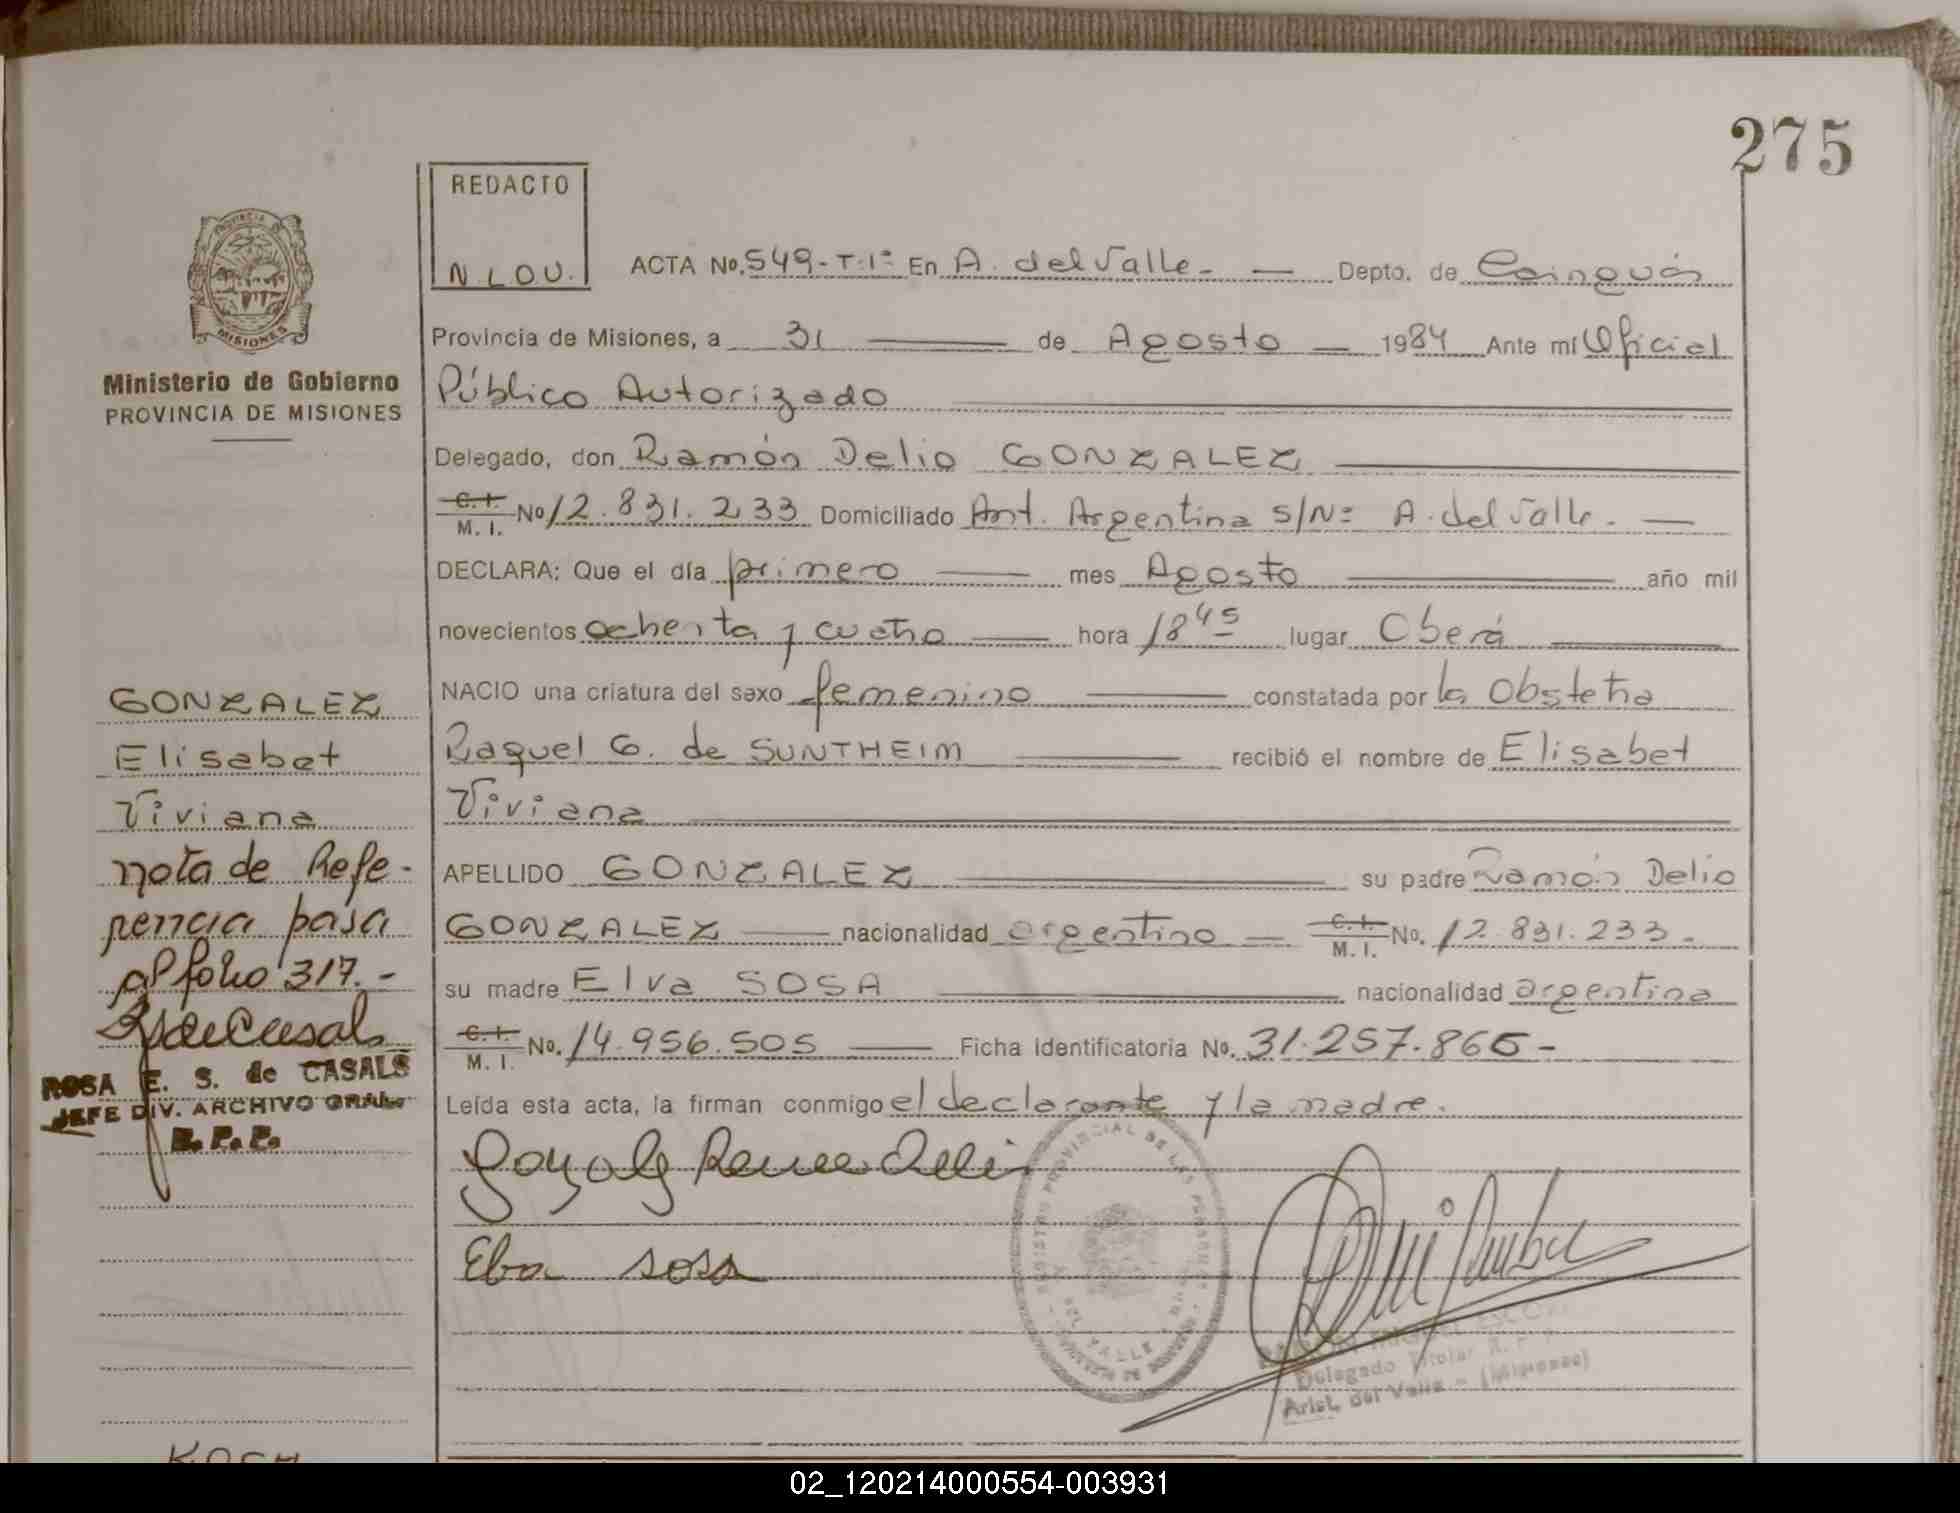 275
REDACTO
N.L.O.U.
ACTA No. 549-T.1º En A. del Valle. Depto. de Cainguás
Provincia de Misiones, a 31 de Agosto 1984 Ante mí Oficial
Público Autorizado
Delegado, don Ramón Delio GONZALEZ
C.I. M.I. No 12.831.233 Domiciliado Ant. Argentina S/Nº A. del Valle.
DECLARA: Que el día primero mes Agosto año mil
novecientos ochenta y cuatro hora 18 45 lugar Oberá
NACIO una criatura del sexo femenino constatada por la Obstetra
Raquel G. de SUNTHEIM recibió el nombre de Elisabet
Viviana
APELLIDO GONZALEZ su padre Ramón Delio
GONZALEZ nacionalidad argentino C.I. M.I. No. 12.831.233.
su madre Elva SOSA nacionalidad argentina
C.I. M.I. No. 14.956.505 Ficha Identificatoria No. 31.257.866-
Leída esta acta, la firman conmigo el declarante y la madre.
Elva sosa
Delegado Titular R. P. P.
Arist. del Valle - (Misiones)
MISIONES
Ministerio de Gobierno
PROVINCIA DE MISIONES
GONZALEZ
Elisabet
Viviana
nota de Refe-
rencia pasa
al folio 317.-
ROSA E. S. de CASALS
JEFE DIV. ARCHIVO GRAL.
R. P. P.
KOCH
02_120214000554-003931